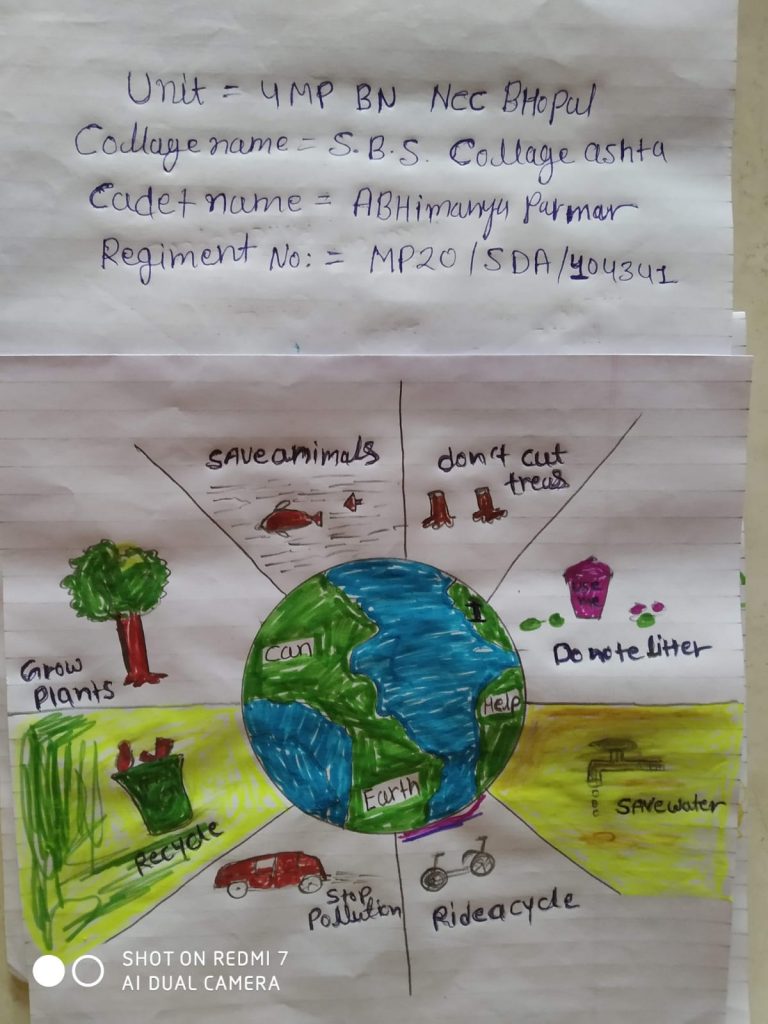 Unit = 4MP BN NCC BHopal
Collage name = S.B.S. Collage ashta
Cadet name = ABHimanyu Parmar
Regiment No: = MP20/SDA/404341
SAVE animals
don't cut
treas
USE
ME
Do note litter
Grow
Plants
I
Can
Help
Earth
SAVE water
Recycle
Stop
Pollution
Ride a cycle
SHOT ON REDMI 7
AI DUAL CAMERA